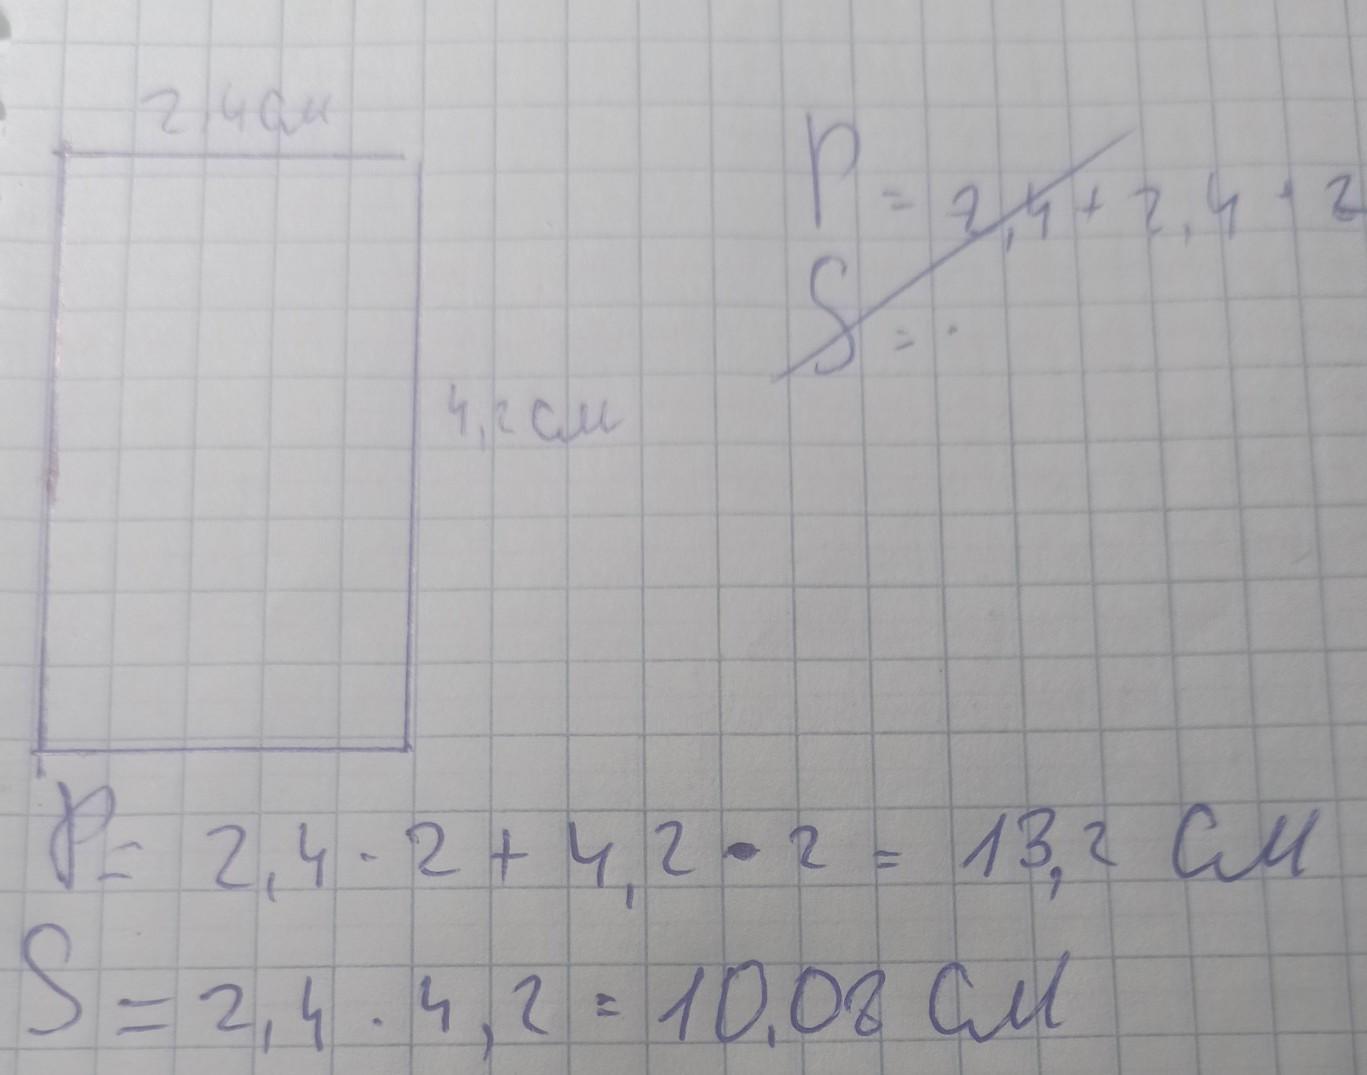 2,4 см
P = 2,4 + 2,4 + 2
S = .
4,2 см
P = 2,4 · 2 + 4,2 · 2 = 13,2 см
S = 2,4 · 4,2 = 10,08 см